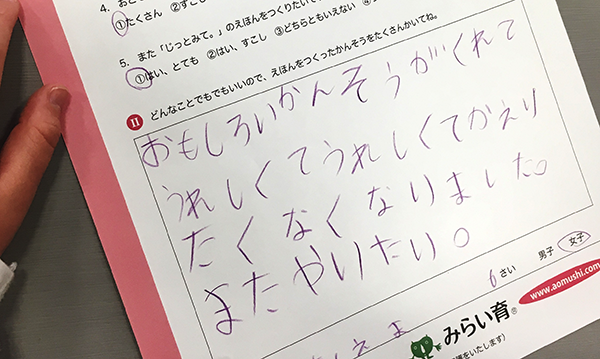 ①たくさん ②すこし ③どちらともいえない
5. また「じっとみて。」のえほんをつくりたいで
①はい、とても ②はい、すこし ③どちらともいえない
II どんなことでもでもいいので、えほんをつくったかんそうをたくさんかいてね。
おもしろいかんそうがくれて
うれしくてうれしくてかえり
たくなくなりました。
またやりたい。
6さい 男子 女子
www.aomushi.com
みらい育®